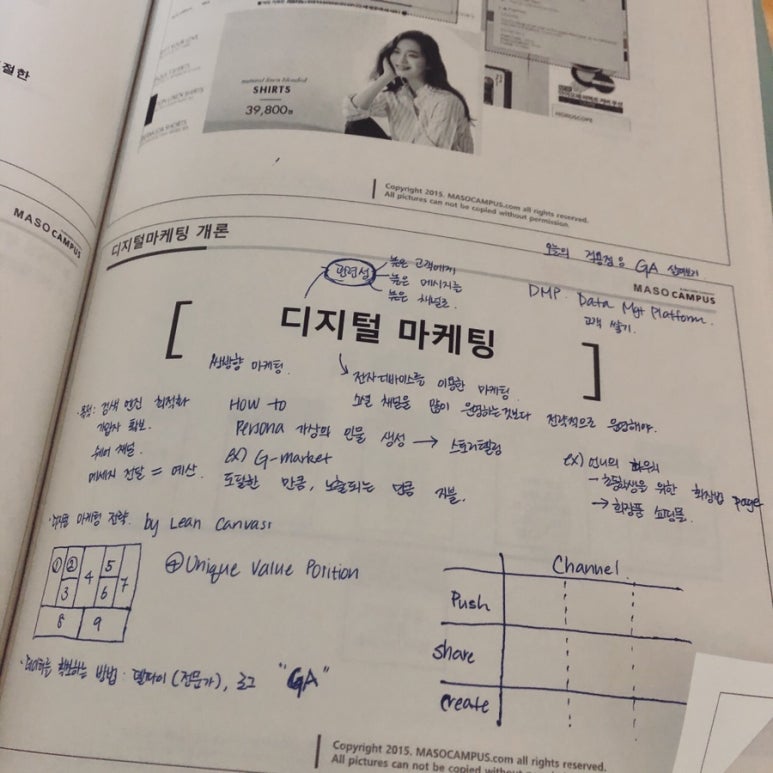 절한
MASO CAMPUS
natural linen blended
SHIRTS
39,800
HOROSCOPE
Copyright 2015. MASOCAMPUS.com all rights reserved.
All pictures can not be copied without permission.
디지털마케팅 개론
오늘의 적용점은 GA
MASO CAMPUS
관련성
높은 고객에게
높은 메시지를
높은 채널로
DMP. Data Mgt Platform.
고객 쌓기.
[디지털 마케팅]
쌍방향 마케팅.
전자디바이스를 이용한 마케팅.
소셜 채널을 많이 운영하는것보다 전략적으로 운영해야.
검색 엔진 최적화
가입자 확보.
쉐어 채널.
메세지 전달 = 예산.
How to
Persona 가상의 인물 생성 → 스토리텔링
ex) G-market
도달한 만큼, 노출되는 만큼 지불.
ex) 언니의 파우치
→ 초등학생을 위한 화장법 page
→ 화장품 쇼핑몰.
마케팅 전략. by Lean Canvass
① ② 3 4 5 6 7 8 9
④ Unique Value Position
Channel
Push
share
create
확보하는 방법. 델파이 (전문가), 로그 "GA"
Copyright 2015. MASOCAMPUS.com all rights reserved.
All pictures can not be copied without